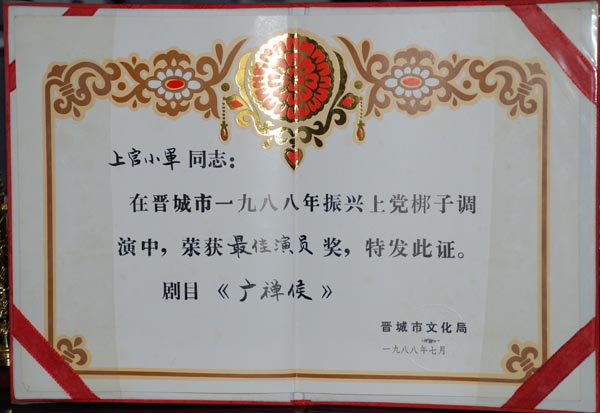 上官小军同志：
在晋城市一九八八年振兴上党梆子调
演中，荣获最佳演员奖，特发此证。
剧目《广禅侯》
晋城市文化局
一九八八年七月